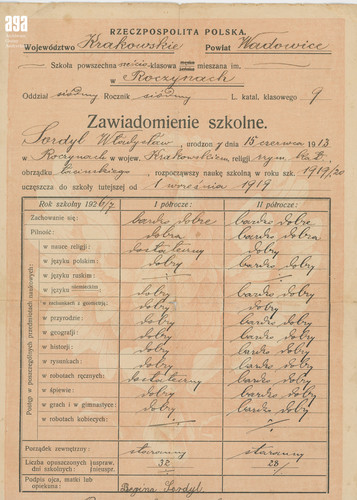 aga
RZECZPOSPOLITA POLSKA.
Województwo Krakowskie Powiat Wadowice
Szkoła powszechna sześcio klasowa mieszana im.
w Roczynach
Oddział siódmy Rocznik siódmy L. katal. klasowego 9
Zawiadomienie szkolne.
Sordyl Władysław, urodzony dnia 15 czerwca 1913
w Roczynach w wojew. Krakowskiem, religji rzym. kat.
obrządku łacińskiego, rozpoczęwszy naukę szkolną w roku szk. 1919/20
uczęszcza do szkoły tutejszej od 1 września 1919
Rok szkolny 1926/7 I półrocze: II półrocze:
Zachowanie się: bardzo dobre bardzo dobre
Pilność: dobra bardzo dobra
Postęp w poszczególnych przedmiotach naukowych:
w nauce religji: dostateczny dobry
w języku polskim dobry bardzo dobry
w języku ruskim
w języku niemieckim: dobry bardzo dobry
w rachunkach z geometrją: dobry dobry
w przyrodzie: dobry bardzo dobry
w geografji: dobry bardzo dobry
w historji: dobry bardzo dobry
w rysunkach: dobry bardzo dobry
w robotach ręcznych: dostateczny bardzo dobry
w śpiewie: dobry bardzo dobry
w grach i w gimnastyce: dobry bardzo dobry
w robotach kobiecych:
Porządek zewnętrzny: staranny staranny
Liczba opuszczonych dni szkolnych: uspraw. 32 28
nieuspr.
Podpis ojca, matki lub opiekuna: Regina Sordyl